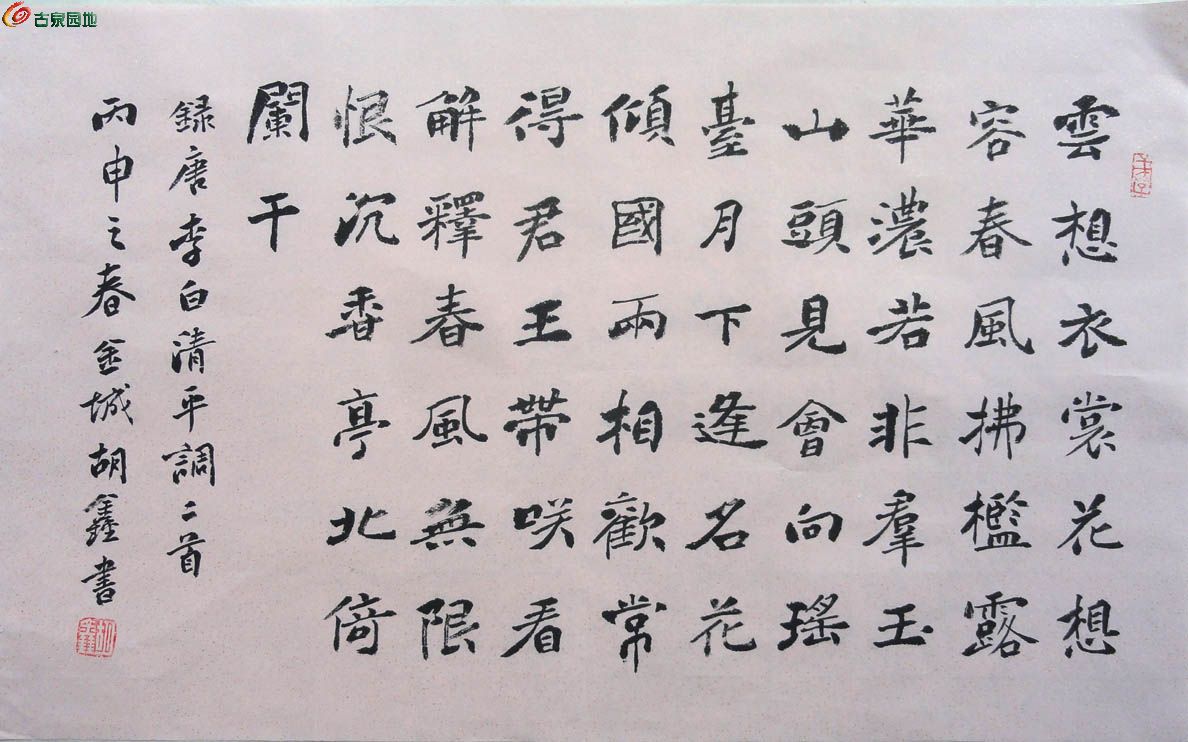 古泉园地
雲想衣裳花想
容春風拂檻露
華濃若非羣玉
山頭見會向瑤
臺月下逢名花
傾國兩相歡常
得君王帶咲看
解釋春風無限
恨沉香亭北倚
闌干
録唐李白清平調二首
丙申之春金城胡鑫書